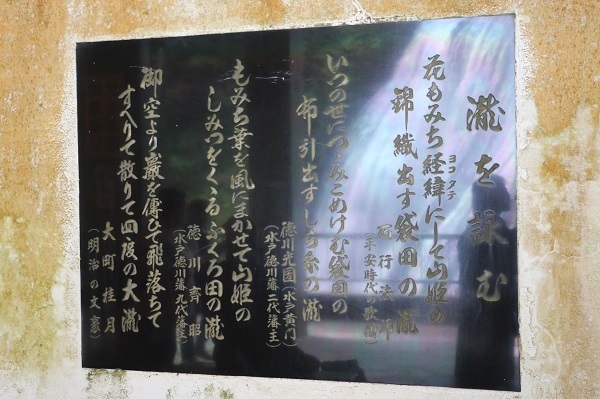 瀧を詠む
花もみち経緯にして山姫の
ヨコタテ
錦織出す袋田の瀧
西行法師
(平安時代の歌僧)
いつのせにつゝみこめけむ袋田の
布引出すしら糸の瀧
徳川光圀(水戸黄門)
(水戸徳川藩二代藩主)
もみち葉を風にまかせて山姫の
しみつをくゝるふくろ田の瀧
徳川齊昭
(水戸徳川藩九代藩主)
御空より巌を傳ひて飛落ちて
すへりて散りて四段の大瀧
大町桂月
(明治の文豪)